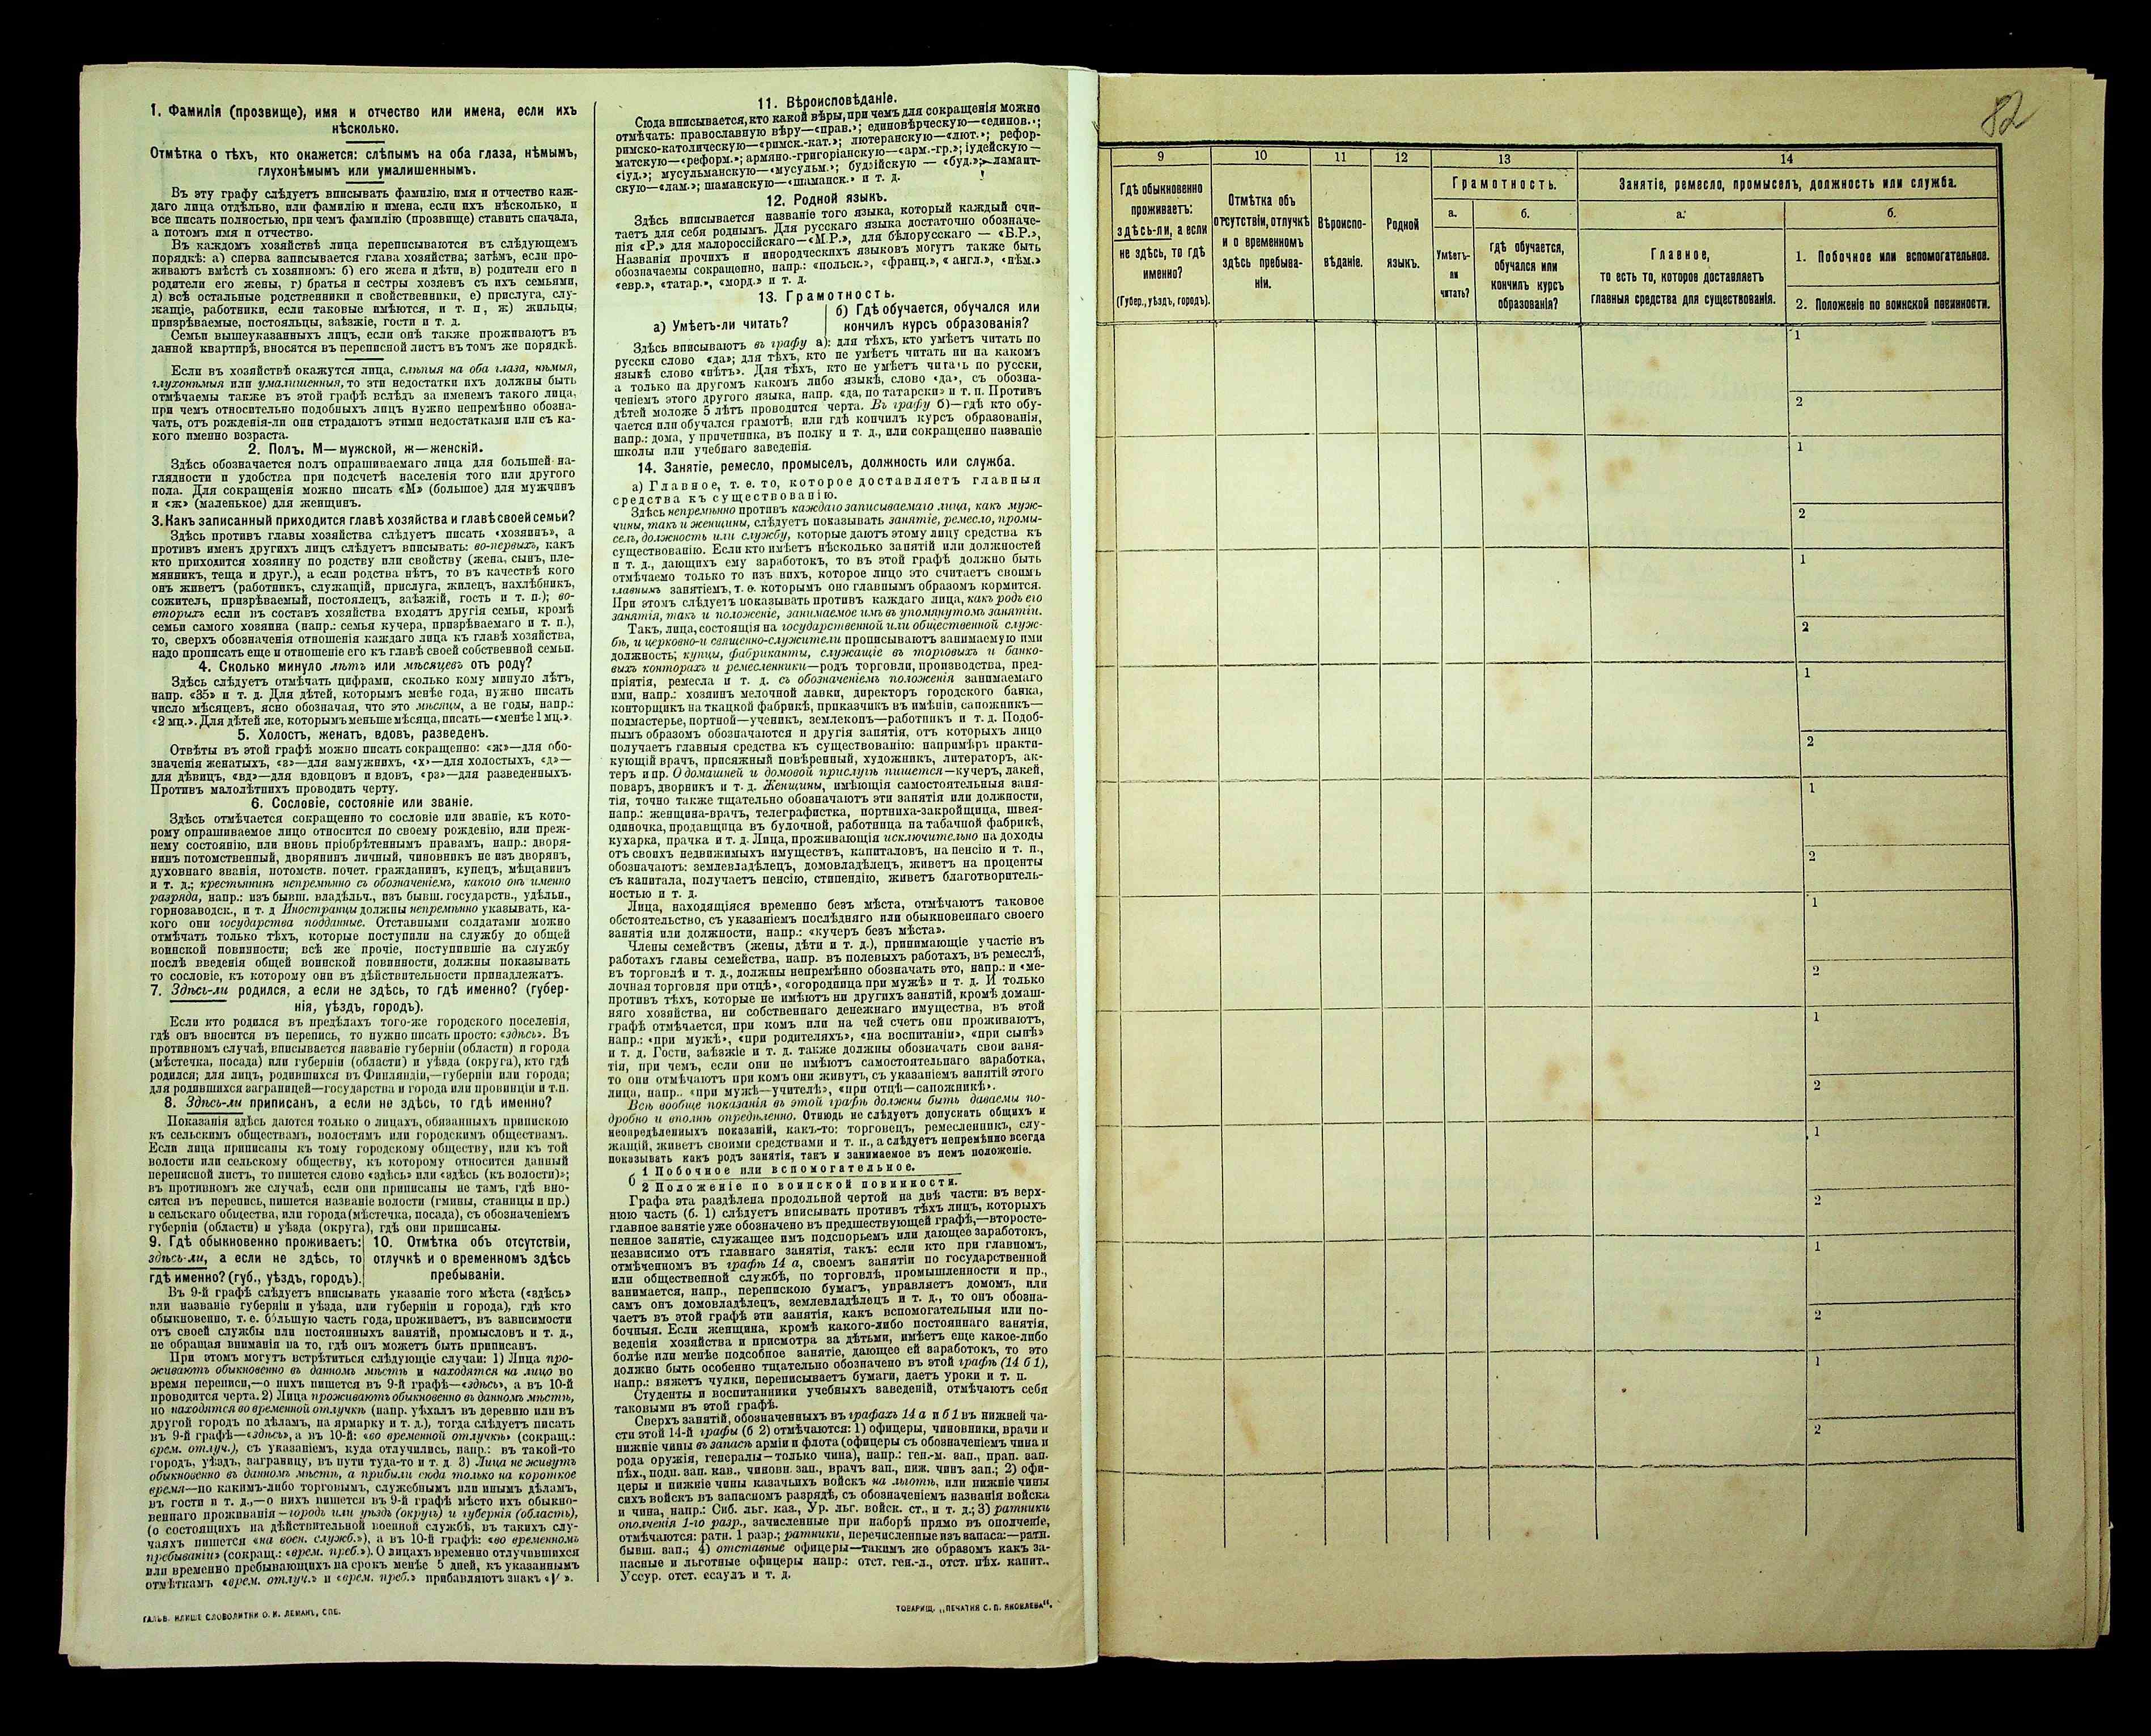 1. Фамилія (прозвище), имя и отчество или имена, если ихъ
нѣсколько.
Отмѣтка о тѣхъ, кто окажется: слѣпымъ на оба глаза, нѣмымъ,
глухонѣмымъ или умалишеннымъ.
Въ эту графу слѣдуетъ вписывать фамилію, имя и отчество каж-
даго лица отдѣльно, или фамилію и имена, если ихъ нѣсколько, и
все писать полностью, при чемъ фамилію (прозвище) ставить сначала,
а потомъ имя и отчество.
Въ каждомъ хозяйствѣ лица переписываются въ слѣдующемъ
порядкѣ: а) сперва записывается глава хозяйства; затѣмъ, если про-
живаютъ вмѣстѣ съ хозяиномъ: б) его жена и дѣти, в) родители его и
родители его жены, г) братья и сестры хозяевъ съ ихъ семьями,
д) всѣ остальные родственники и свойственники, е) прислуга, слу-
жащіе, работники, если таковые имѣются, и т. п, ж) жильцы,
призрѣваемые, постояльцы, заѣзжіе, гости и т. д.
Семьи вышеуказанныхъ лицъ, если онѣ также проживаютъ въ
данной квартирѣ, вносятся въ переписной листъ въ томъ же порядкѣ.
Если въ хозяйствѣ окажутся лица, слѣпыя на оба глаза, нѣмыя,
глухонѣмыя или умалишенныя, то эти недостатки ихъ должны быть
отмѣчаемы также въ этой графѣ вслѣдъ за именемъ такого лица,
при чемъ относительно подобныхъ лицъ нужно непремѣнно обозна-
чать, отъ рожденія-ли они страдаютъ этими недостатками или съ ка-
кого именно возраста.
2. Полъ. М—мужской, ж—женскій.
Здѣсь обозначается полъ опрашиваемаго лица для большей на-
глядности и удобства при подсчетѣ населенія того или другого
пола. Для сокращенія можно писать «М» (большое) для мужчинъ
и «ж» (маленькое) для женщинъ.
3. Какъ записанный приходится главѣ хозяйства и главѣ своей семьи?
Здѣсь противъ главы хозяйства слѣдуетъ писать «хозяинъ», а
противъ именъ другихъ лицъ слѣдуетъ вписывать: во-первыхъ, какъ
кто приходится хозяину по родству или свойству (жена, сынъ, пле-
мянникъ, теща и друг.), а если родства нѣтъ, то въ качествѣ кого
онъ живетъ (работникъ, служащій, прислуга, жилецъ, нахлѣбникъ,
сожитель, призрѣваемый, постоялецъ, заѣзжій, гость и т. п.); во-
вторыхъ если въ составъ хозяйства входятъ другія семьи, кромѣ
семьи самого хозяина (напр.: семья кучера, призрѣваемаго и т. п.),
то, сверхъ обозначенія отношенія каждаго лица къ главѣ хозяйства,
надо прописать еще и отношеніе его къ главѣ своей собственной семьи.
4. Сколько минуло лѣтъ или мѣсяцевъ отъ роду?
Здѣсь слѣдуетъ отмѣчать цифрами, сколько кому минуло лѣтъ,
напр. «35» и т. д. Для дѣтей, которымъ менѣе года, нужно писать
число мѣсяцевъ, ясно обозначая, что это мѣсяцы, а не годы, напр.:
«2 мц.». Для дѣтей же, которымъ меньше мѣсяца, писать—«менѣе 1 мц.».
5. Холостъ, женатъ, вдовъ, разведенъ.
Отвѣты въ этой графѣ можно писать сокращенно: «ж»—для обо-
значенія женатыхъ, «з»—для замужнихъ, «х»—для холостыхъ, «д»—
для дѣвицъ, «вд»—для вдовцовъ и вдовъ, «рз»—для разведенныхъ.
Противъ малолѣтнихъ проводить черту.
6. Сословіе, состояніе или званіе.
Здѣсь отмѣчается сокращенно то сословіе или званіе, къ кото-
рому опрашиваемое лицо относится по своему рожденію, или преж-
нему состоянію, или вновь пріобрѣтеннымъ правамъ, напр.: дворя-
нинъ потомственный, дворянинъ личный, чиновникъ не изъ дворянъ,
духовнаго званія, потомств. почет. гражданинъ, купецъ, мѣщанинъ
и т. д.; крестьянинъ непремѣнно съ обозначеніемъ, какого онъ именно
разряда, напр.: изъ бывш. владѣльч., изъ бывш. государств., удѣльн.,
горнозаводск., и т. д Иностранцы должны непремѣнно указывать, ка-
кого они государства подданные. Отставными солдатами можно
отмѣчать только тѣхъ, которые поступили на службу до общей
воинской повинности; всѣ же прочіе, поступившіе на службу
послѣ введенія общей воинской повинности, должны показывать
то сословіе, къ которому они въ дѣйствительности принадлежатъ.
7. Здѣсь-ли родился, а если не здѣсь, то гдѣ именно? (губер-
нія, уѣздъ, городъ).
Если кто родился въ предѣлахъ того-же городского поселенія,
гдѣ онъ вносится въ перепись, то нужно писать просто: «здѣсь». Въ
противномъ случаѣ, вписывается названіе губерніи (области) и города
(мѣстечка, посада) или губерніи (области) и уѣзда (округа), кто гдѣ
родился; для лицъ, родившихся въ Финляндіи,—губерніи или города;
для родившихся заграницей—государства и города или провинціи и т.п.
8. Здѣсь-ли приписанъ, а если не здѣсь, то гдѣ именно?
Показанія здѣсь даются только о лицахъ, обязанныхъ припискою
къ сельскимъ обществамъ, волостямъ или городскимъ обществамъ.
Если лица приписаны къ тому городскому обществу, или къ той
волости или сельскому обществу, къ которому относится данный
переписной листъ, то пишется слово «здѣсь» или «здѣсь (къ волости)»;
въ противномъ же случаѣ, если они приписаны не тамъ, гдѣ вно-
сятся въ перепись, пишется названіе волости (гмины, станицы и пр.)
и сельскаго общества, или города (мѣстечка, посада), съ обозначеніемъ
губерніи (области) и уѣзда (округа), гдѣ они приписаны.
9. Гдѣ обыкновенно проживаетъ:
здѣсь-ли, а если не здѣсь, то
гдѣ именно? (губ., уѣздъ, городъ).
10. Отмѣтка объ отсутствіи,
отлучкѣ и о временномъ здѣсь
пребываніи.
Въ 9-й графѣ слѣдуетъ вписывать указаніе того мѣста («здѣсь»
или названіе губерніи и уѣзда, или губерніи и города), гдѣ кто
обыкновенно, т. е. бо́льшую часть года, проживаетъ, въ зависимости
отъ своей службы или постоянныхъ занятій, промысловъ и т. д.,
не обращая вниманія на то, гдѣ онъ можетъ быть приписанъ.
При этомъ могутъ встрѣтиться слѣдующіе случаи: 1) Лица про-
живаютъ обыкновенно въ данномъ мѣстѣ и находятся на лицо во
время переписи,—о нихъ пишется въ 9-й графѣ—«здѣсь», а въ 10-й
проводится черта. 2) Лица проживаютъ обыкновенно въ данномъ мѣстѣ,
но находятся во временной отлучкѣ (напр. уѣхалъ въ деревню или въ
другой городъ по дѣламъ, на ярмарку и т. д.), тогда слѣдуетъ писать
въ 9-й графѣ—«здѣсь», а въ 10-й: «во временной отлучкѣ» (сокращ.:
врем. отлуч.), съ указаніемъ, куда отлучились, напр.: въ такой-то
городъ, уѣздъ, заграницу, въ пути туда-то и т. д 3) Лица не живутъ
обыкновенно въ данномъ мѣстѣ, а прибыли сюда только на короткое
время—по какимъ-либо торговымъ, служебнымъ или инымъ дѣламъ,
въ гости и т. д.,—о нихъ пишется въ 9-й графѣ мѣсто ихъ обыкно-
веннаго проживанія—городъ или уѣздъ (округъ) и губернія (область),
(о состоящихъ на дѣйствительной военной службѣ, въ такихъ слу-
чаяхъ пишется «на воен. служб.»), а въ 10-й графѣ: «во временномъ
пребываніи» (сокращ.: «врем. преб.»). О лицахъ временно отлучившихся
или временно пребывающихъ на срокъ менѣе 5 дней, къ указаннымъ
отмѣткамъ «врем. отлуч.» и «врем. преб.» прибавляютъ знакъ «V».
ГАЛЬВ. КЛИШЕ СЛОВОЛИТНИ О. И. ЛЕМАНЪ, СПБ.
11. Вѣроисповѣданіе.
Сюда вписывается, кто какой вѣры, при чемъ для сокращенія можно
отмѣчать: православную вѣру—«прав.»; единовѣрческую—«единов.»;
римско-католическую—«римск.-кат.»; лютеранскую—«лют.»; рефор-
матскую—«реформ.»; армяно.-григоріанскую—«арм.-гр.»; іудейскую—
«іуд.»; мусульманскую—«мусульм.»; буддійскую — «буд.»; ламаит-
скую—«лам.»; шаманскую—«шаманск.» и т. д.
12. Родной языкъ.
Здѣсь вписывается названіе того языка, который каждый счи-
таетъ для себя роднымъ. Для русскаго языка достаточно обозначе-
нія «Р.» для малороссійскаго—«М.Р.», для бѣлорусскаго — «Б.Р.»,
Названія прочихъ и инородческихъ языковъ могутъ также быть
обозначаемы сокращенно, напр.: «польск.», «франц.», « англ.», «нѣм.»
«евр.», «татар.», «морд.» и т. д.
13. Грамотность.
а) Умѣетъ-ли читать?
б) Гдѣ обучается, обучался или
кончилъ курсъ образованія?
Здѣсь вписываютъ въ графу а): для тѣхъ, кто умѣетъ читать по
русски слово «да»; для тѣхъ, кто не умѣетъ читать ни на какомъ
языкѣ слово «нѣтъ». Для тѣхъ, кто не умѣетъ читать по русски,
а только на другомъ какомъ либо языкѣ, слово «да», съ обозна-
ченіемъ этого другого языка, напр. «да, по татарски» и т. п. Противъ
дѣтей моложе 5 лѣтъ проводится черта. Въ графу б)—гдѣ кто обу-
чается или обучался грамотѣ, или гдѣ кончилъ курсъ образованія,
напр.: дома, у причетника, въ полку и т. д., или сокращенно названіе
школы или учебнаго заведенія.
14. Занятіе, ремесло, промыселъ, должность или служба.
а) Главное, т. е. то, которое доставляетъ главныя
средства къ существованію.
Здѣсь непремѣнно противъ каждаго записываемаго лица, какъ муж-
чины, такъ и женщины, слѣдуетъ показывать занятіе, ремесло, промы-
селъ, должность или службу, которые даютъ этому лицу средства къ
существованію. Если кто имѣетъ нѣсколько занятій или должностей
и т. д., дающихъ ему заработокъ, то въ этой графѣ должно быть
отмѣчаемо только то изъ нихъ, которое лицо это считаетъ своимъ
главнымъ занятіемъ, т. е. которымъ оно главнымъ образомъ кормится.
При этомъ слѣдуетъ показывать противъ каждаго лица, какъ родъ его
занятія, такъ и положеніе, занимаемое имъ въ упомянутомъ занятіи.
Такъ, лица, состоящія на государственной или общественной служ-
бѣ, и церковно-и священно-служители прописываютъ занимаемую ими
должность; купцы, фабриканты, служащіе въ торговыхъ и банко-
выхъ конторахъ и ремесленники—родъ торговли, производства, пред-
пріятія, ремесла и т. д. съ обозначеніемъ положенія занимаемаго
ими, напр.: хозяинъ мелочной лавки, директоръ городского банка,
конторщикъ на ткацкой фабрикѣ, приказчикъ въ имѣніи, сапожникъ—
подмастерье, портной—ученикъ, землекопъ—работникъ и т. д. Подоб-
нымъ образомъ обозначаются и другія занятія, отъ которыхъ лицо
получаетъ главныя средства къ существованію: напримѣръ практи-
кующій врачъ, присяжный повѣренный, художникъ, литераторъ, ак-
теръ и пр. О домашней и домовой прислугѣ пишется—кучеръ, лакей,
поваръ, дворникъ и т. д. Женщины, имѣющія самостоятельныя заня-
тія, точно также тщательно обозначаютъ эти занятія или должности,
напр.: женщина-врачъ, телеграфистка, портниха-закройщица, швея-
одиночка, продавщица въ булочной, работница на табачной фабрикѣ,
кухарка, прачка и т. д. Лица, проживающія исключительно на доходы
отъ своихъ недвижимыхъ имуществъ, капиталовъ, на пенсію и т. п.,
обозначаютъ: землевладѣлецъ, домовладѣлецъ, живетъ на проценты
съ капитала, получаетъ пенсію, стипендію, живетъ благотворитель-
ностью и т. д.
Лица, находящіяся временно безъ мѣста, отмѣчаютъ таковое
обстоятельство, съ указаніемъ послѣдняго или обыкновеннаго своего
занятія или должности, напр.: «кучеръ безъ мѣста».
Члены семействъ (жены, дѣти и т. д.), принимающіе участіе въ
работахъ главы семейства, напр. въ полевыхъ работахъ, въ ремеслѣ,
въ торговлѣ и т. д., должны непремѣнно обозначать это, напр.: и «ме-
лочная торговля при отцѣ», «огородница при мужѣ» и т. д. И только
противъ тѣхъ, которые не имѣютъ ни другихъ занятій, кромѣ домаш-
няго хозяйства, ни собственнаго денежнаго имущества, въ этой
графѣ отмѣчается, при комъ или на чей счетъ они проживаютъ,
напр.: «при мужѣ», «при родителяхъ», «на воспитаніи», «при сынѣ»
и т. д. Гости, заѣзжіе и т. д. также должны обозначать свои заня-
тія, при чемъ, если они не имѣютъ самостоятельнаго заработка,
то они отмѣчаютъ при комъ они живутъ, съ указаніемъ занятій этого
лица, напр.. «при мужѣ—учителѣ», «при отцѣ—сапожникѣ».
Всѣ вообще показанія въ этой графѣ должны быть даваемы по-
дробно и вполнѣ опредѣленно. Отнюдь не слѣдуетъ допускать общихъ и
неопредѣленныхъ показаній, какъ-то: торговецъ, ремесленникъ, слу-
жащій, живетъ своими средствами и т. п., а слѣдуетъ непремѣнно всегда
показывать какъ родъ занятія, такъ и занимаемое въ немъ положеніе.
1 Побочное или вспомогательное.
б
2 Положеніе по воинской повинности.
Графа эта раздѣлена продольной чертой на двѣ части: въ верх-
нюю часть (б. 1) слѣдуетъ вписывать противъ тѣхъ лицъ, которыхъ
главное занятіе уже обозначено въ предшествующей графѣ,—второсте-
пенное занятіе, служащее имъ подспорьемъ или дающее заработокъ,
независимо отъ главнаго занятія, такъ: если кто при главномъ,
отмѣченномъ въ графѣ 14 а, своемъ занятіи по государственной
или общественной службѣ, по торговлѣ, промышленности и пр.,
занимается, напр., перепискою бумагъ, управляетъ домомъ, или
самъ онъ домовладѣлецъ, землевладѣлецъ и т. д., то онъ обозна-
чаетъ въ этой графѣ эти занятія, какъ вспомогательныя или по-
бочныя. Если женщина, кромѣ какого-либо постояннаго занятія,
веденія хозяйства и присмотра за дѣтьми, имѣетъ еще какое-либо
болѣе или менѣе подсобное занятіе, дающее ей заработокъ, то это
должно быть особенно тщательно обозначено въ этой графѣ (14 б 1),
напр.: вяжетъ чулки, переписываетъ бумаги, даетъ уроки и т. п.
Студенты и воспитанники учебныхъ заведеній, отмѣчаютъ себя
таковыми въ этой графѣ.
Сверхъ занятій, обозначенныхъ въ графахъ 14 а и б 1 въ нижней ча-
сти этой 14-й графы (б 2) отмѣчаются: 1) офицеры, чиновники, врачи и
нижніе чины въ запасѣ арміи и флота (офицеры съ обозначеніемъ чина и
рода оружія, генералы—только чина), напр.: ген.-м. зап., прап. зап.
пѣх., подп. зап. кав., чиновн. зап., врачъ зап., ниж. чинъ зап.; 2) офи-
церы и нижніе чины казачьихъ войскъ на льготѣ, или нижніе чины
сихъ войскъ въ запасномъ разрядѣ, съ обозначеніемъ названія войска
и чина, напр.: Сиб. льг. каз., Ур. льг. войск. ст., и т. д.; 3) ратники
ополченія 1-го разр., зачисленные при наборѣ прямо въ ополченіе,
отмѣчаются: ратн. 1 разр.; ратники, перечисленные изъ запаса:—ратн.
бывш. зап.; 4) отставные офицеры—такимъ же образомъ какъ за-
пасные и льготные офицеры напр.: отст. ген.-л., отст. пѣх. капит.,
Уссур. отст. есаулъ и т. д.
ТОВАРИЩ. „ПЕЧАТНЯ С. П. ЯКОВЛЕВА“.
82
9
10
11
12
13
14
Гдѣ обыкновенно
проживаетъ:
здѣсь-ли, а если
не здѣсь, то гдѣ
именно?
(Губер., уѣздъ, городъ).
Отмѣтка объ
отсутствіи, отлучкѣ
и о временномъ
здѣсь пребыва-
ніи.
Вѣроиспо-
вѣданіе.
Родной
языкъ.
Грамотность.
а.
б.
Умѣетъ-
ли
читать?
гдѣ обучается,
обучался или
кончилъ курсъ
образованія?
Занятіе, ремесло, промыселъ, должность или служба.
а.
б.
Главное,
то есть то, которое доставляетъ
главныя средства для существованія.
1. Побочное или вспомогательное.
2. Положеніе по воинской повинности.
1
2
1
2
1
2
1
2
1
2
1
2
1
2
1
2
1
2
1
2